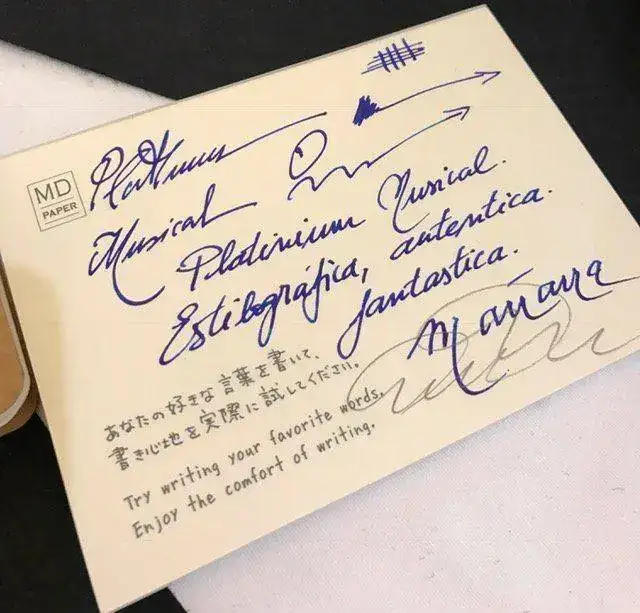 MD
PAPER
Platinum
Musical
Platinium Musical.
Estilográfica, autentica.
fantastica.
あなたの好きな言葉を書いて、
書き心地を実際に試してください。
Try writing your favorite words.
Enjoy the comfort of writing.